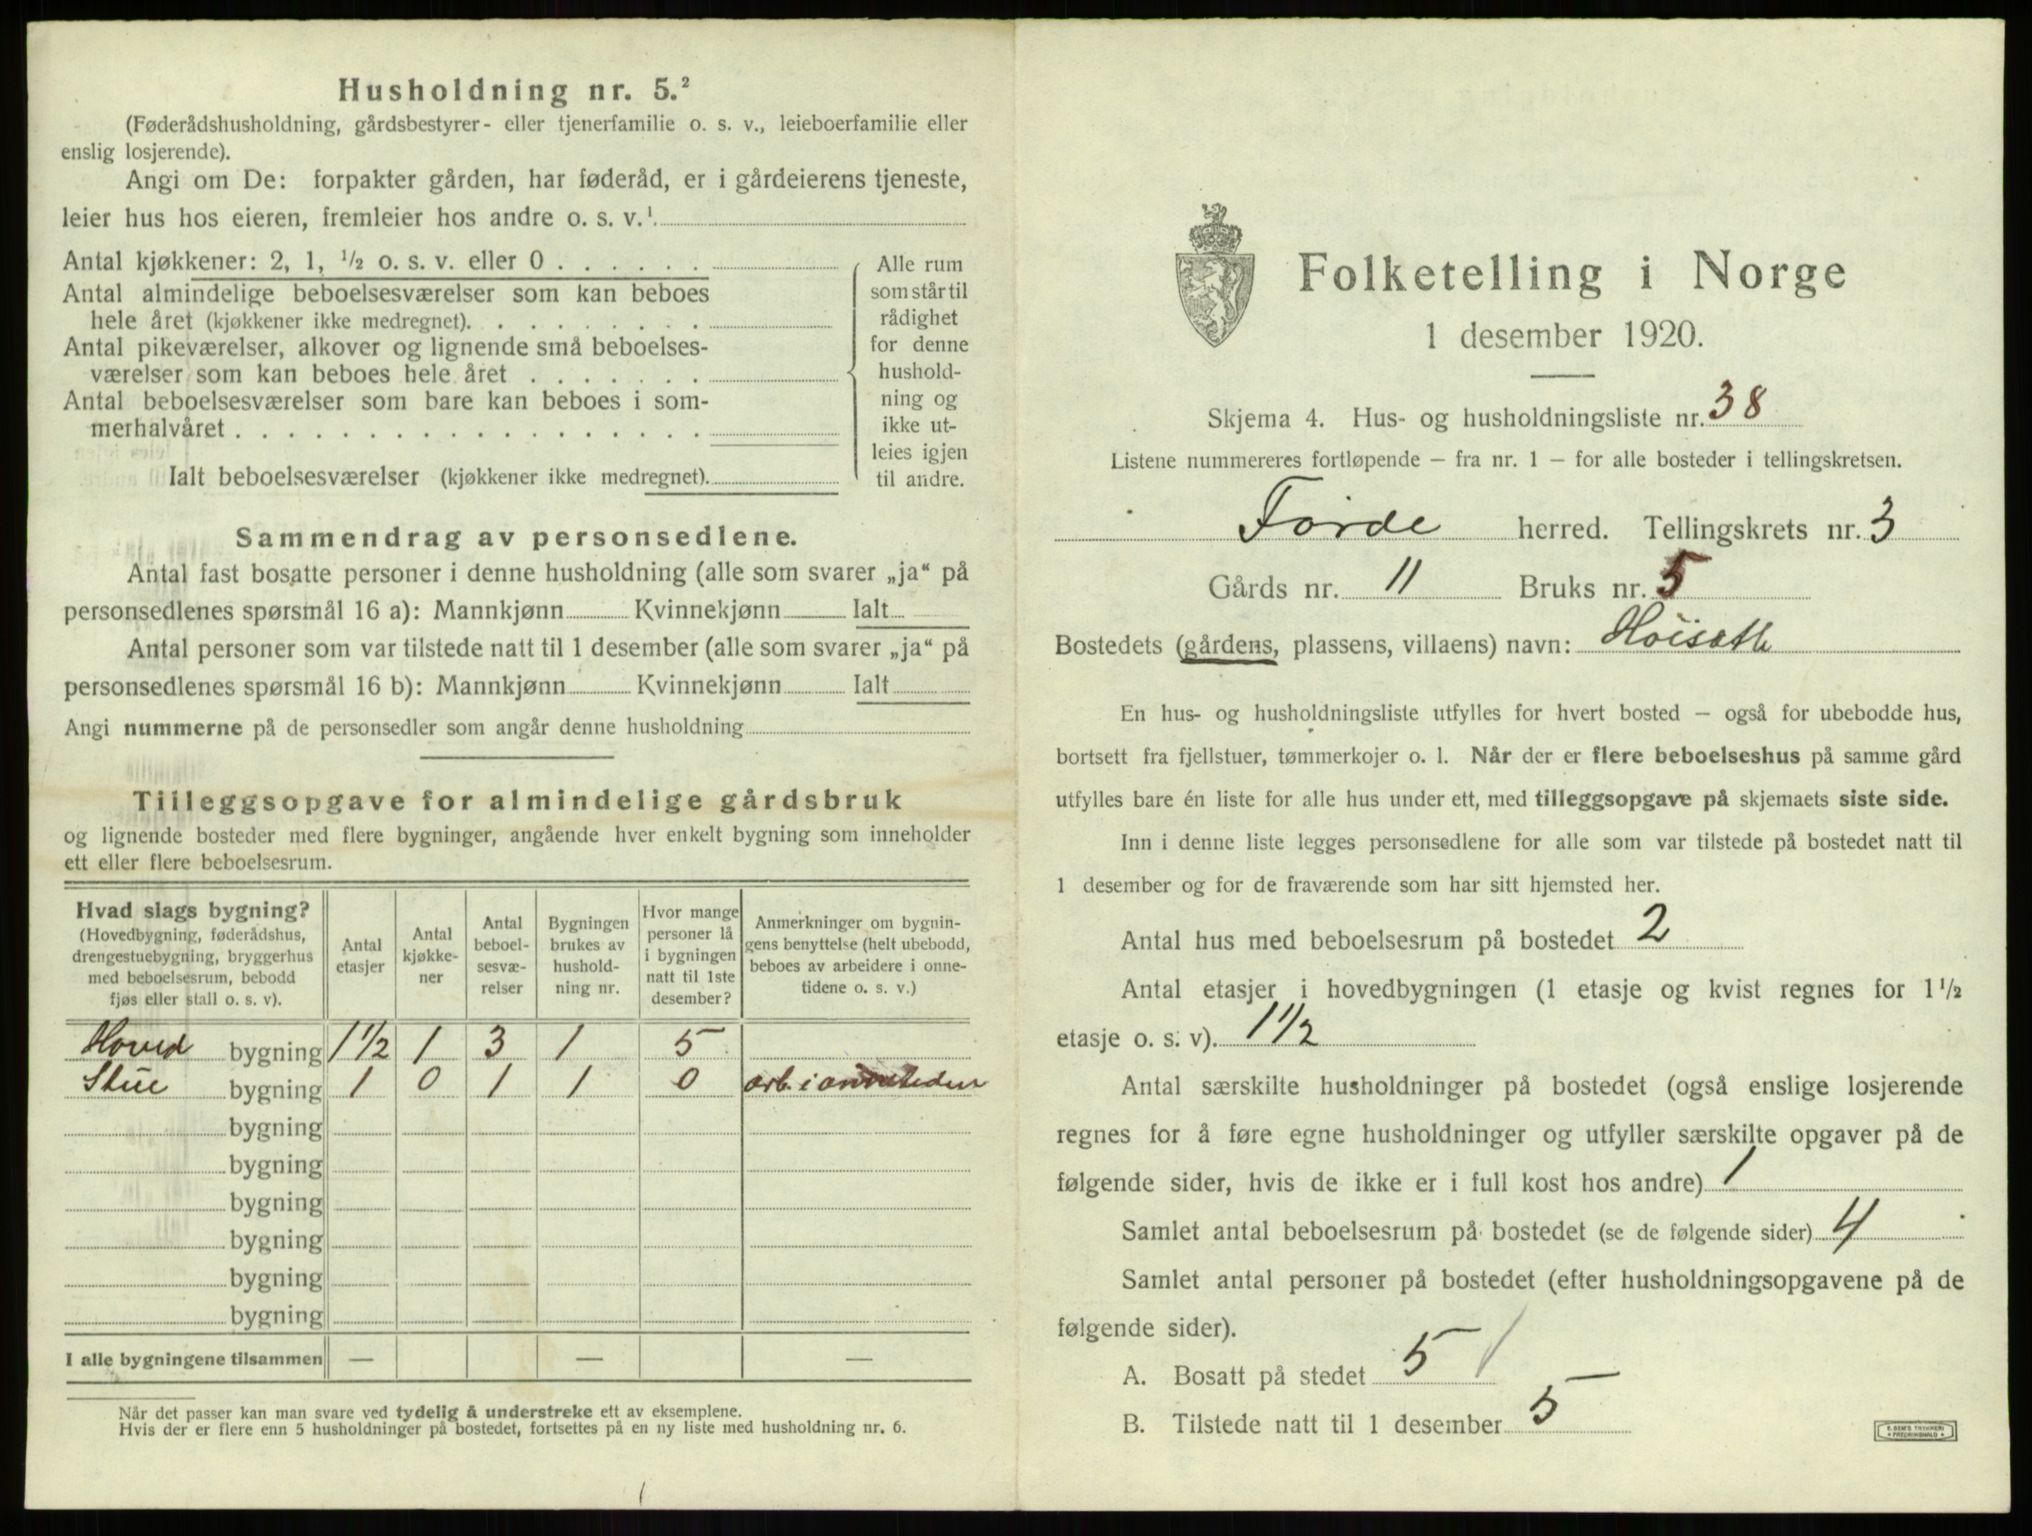 Husholdning nr. 5.²
(Føderådshusholdning, gårdsbestyrer- eller tjenerfamilie o. s. v., leieboerfamilie eller
enslig losjerende).
Angi om De: forpakter gården, har føderåd, er i gårdeierens tjeneste,
leier hus hos eieren, fremleier hos andre o. s. v.¹
Antal kjøkkener: 2, 1, ½ o. s. v. eller 0 . . . . . .
Antal almindelige beboelsesværelser som kan beboes
hele året (kjøkkener ikke medregnet). . . . . . . . .
Antal pikeværelser, alkover og lignende små beboelses-
værelser som kan beboes hele året . . . . . . .
Antal beboelsesværelser som bare kan beboes i som-
merhalvåret . . . . . . . . . . . . . . . . .
Ialt beboelsesværelser (kjøkkener ikke medregnet).
Alle rum
som står til
rådighet
for denne
hushold-
ning og
ikke ut-
leies igjen
til andre.
Sammendrag av personsedlene.
Antal fast bosatte personer i denne husholdning (alle som svarer „ja“ på
personsedlenes spørsmål 16 a): Mannkjønn Kvinnekjønn Ialt
Antal personer som var tilstede natt til 1 desember (alle som svarer „ja“ på
personsedlenes spørsmål 16 b): Mannkjønn Kvinnekjønn Ialt
Angi nummerne på de personsedler som angår denne husholdning
Tilleggsopgave for almindelige gårdsbruk
og lignende bosteder med flere bygninger, angående hver enkelt bygning som inneholder
ett eller flere beboelsesrum.
Hvad slags bygning?
(Hovedbygning, føderådshus,
drengestuebygning, bryggerhus
med beboelsesrum, bebodd
fjøs eller stall o. s. v).
Antal
etasjer
Antal
kjøkke-
ner
Antal
beboel-
sesvæ-
relser
Bygningen
brukes av
hushold-
ning nr.
Hvor mange
personer lå
i bygningen
natt til 1ste
desember?
Anmerkninger om bygnin-
gens benyttelse (helt ubebodd,
beboes av arbeidere i onne-
tidene o. s. v.)
Hoved bygning 1½ 1 3 1 5
Stue bygning 1 0 1 1 0 arb. i onnetiden
bygning
bygning
bygning
bygning
bygning
bygning
I alle bygningene tilsammen — — —
Når det passer kan man svare ved tydelig å understreke ett av eksemplene.
Hvis der er flere enn 5 husholdninger på bostedet, fortsettes på en ny liste med husholdning nr. 6.
Folketelling i Norge
1 desember 1920.
Skjema 4. Hus- og husholdningsliste nr. 38
Listene nummereres fortløpende – fra nr. 1 – for alle bosteder i tellingskretsen.
Førde herred. Tellingskrets nr. 3
Gårds nr. 11 Bruks nr. 5
Bostedets (gårdens, plassens, villaens) navn: Høisæth
En hus- og husholdningsliste utfylles for hvert bosted – også for ubebodde hus,
bortsett fra fjellstuer, tømmerkojer o. l. Når der er flere beboelseshus på samme gård
utfylles bare én liste for alle hus under ett, med tilleggsopgave på skjemaets siste side.
Inn i denne liste legges personsedlene for alle som var tilstede på bostedet natt til
1 desember og for de fraværende som har sitt hjemsted her.
Antal hus med beboelsesrum på bostedet 2
Antal etasjer i hovedbygningen (1 etasje og kvist regnes for 1½
etasje o. s. v). 1½
Antal særskilte husholdninger på bostedet (også enslige losjerende
regnes for å føre egne husholdninger og utfyller særskilte opgaver på de
følgende sider, hvis de ikke er i full kost hos andre) 1
Samlet antal beboelsesrum på bostedet (se de følgende sider) 4
Samlet antal personer på bostedet (efter husholdningsopgavene på de
følgende sider).
A. Bosatt på stedet 5
B. Tilstede natt til 1 desember 5